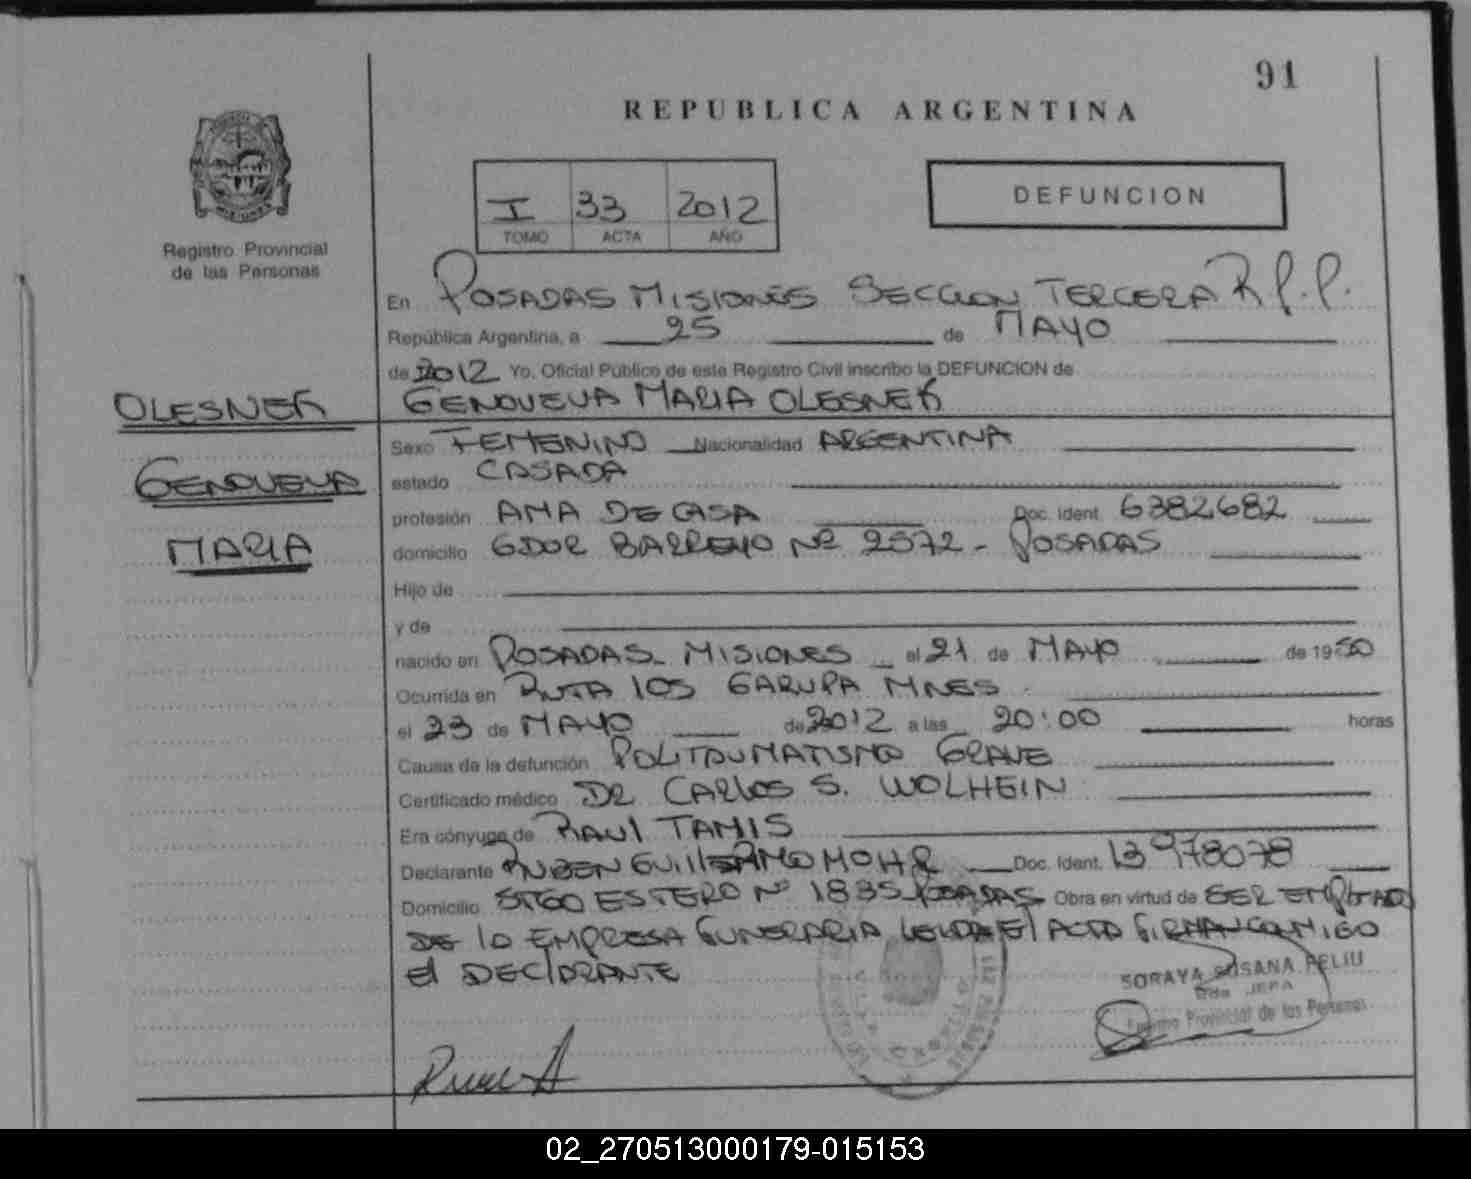 91
REPUBLICA ARGENTINA
I 33 2012
TOMO ACTA AÑO
DEFUNCION
Registro Provincial
de las Personas
En POSADAS MISIONES SECCION TERCERA R.P.P.
República Argentina, a 25 de MAYO
de 2012 Yo, Oficial Público de este Registro Civil inscribo la DEFUNCION de
GENOVEVA MARIA OLESNEK
OLESNEK
GENOVEVA
MARIA
Sexo FEMENINO Nacionalidad ARGENTINA
estado CASADA
profesión AMA DE CASA Doc. Ident. 6382682
domicilio GDOR BARREYO Nº 2572 - POSADAS
Hijo de
y de
nacido en POSADAS - MISIONES el 21 de MAYO de 1950
Ocurrida en RUTA 105 GARUPA MNES
el 23 de MAYO de 2012 a las 20:00 horas
Causa de la defunción POLITAUMATISMO GRAVE
Certificado médico DR CARLOS S. WOLHEIN
Era cónyuge de RAUL TAMIS
Declarante RUBEN GUILLERMO MOHR Doc. Ident. 13978078
Domicilio STGO ESTERO Nº 1835 POSADAS Obra en virtud de SER EMPLEADO
DE LA EMPRESA FUNERARIA LEIDA EL ACTA FIRMAN CONMIGO
El DECLARANTE
SORAYA SUSANA FELIU
Provincial de las Personas
02_270513000179-015153